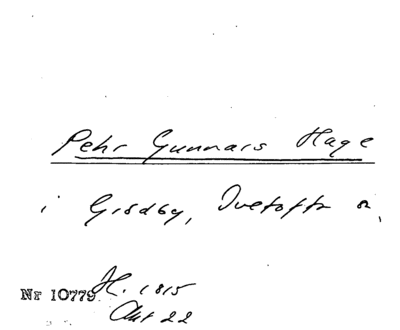 Pehr Gunnars Hage
i Grödby, Ivetofta s,
Nr 10779 H. 1815
Akt 22